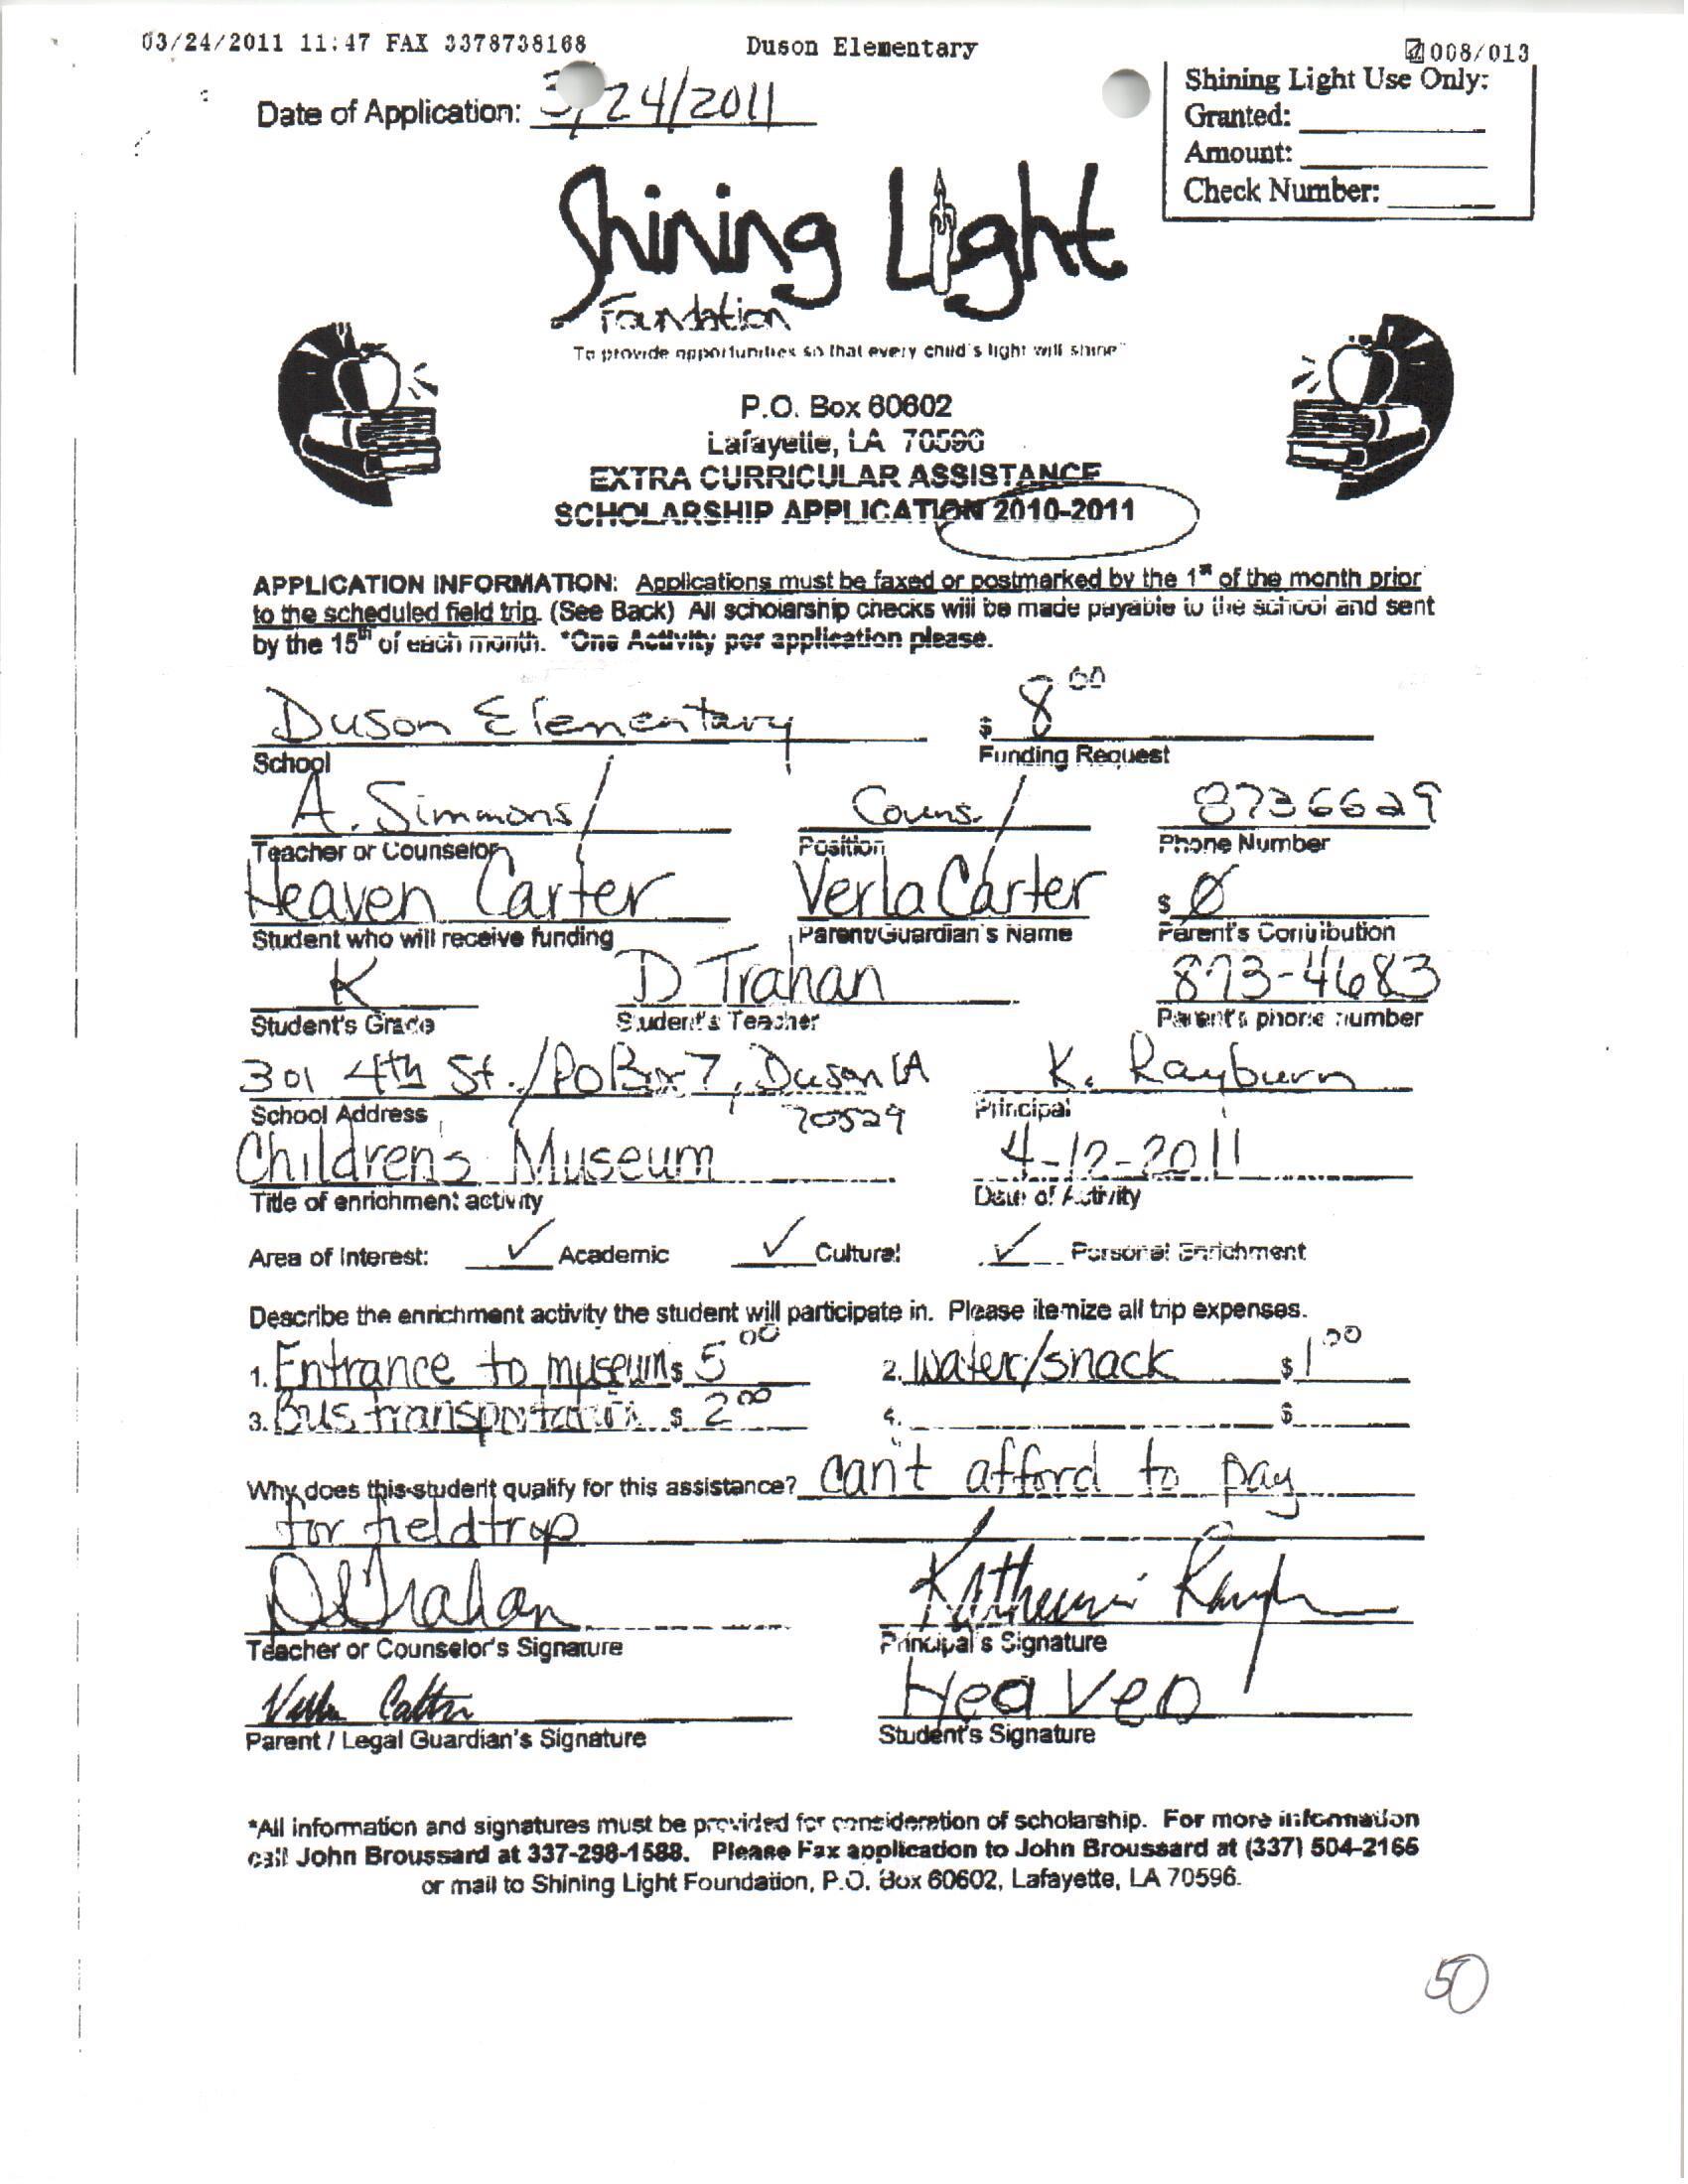 03/24/2011 11:47 FAX 3378738168 Duson Elementary 008/013
Shining Light Use Only:
Date of Application: 3/24/2011
Granted:
Amount:
Check Number:
Shining Light
Foundation
To provide opportunities so that every child's light will shine"
P.O. Box 60602
Lafayette, LA 70596
EXTRA CURRICULAR ASSISTANCE
SCHOLARSHIP APPLICATION 2010-2011
APPLICATION INFORMATION: Applications must be faxed or postmarked by the 1st of the month prior
to the scheduled field trip. (See Back) All scholarship checks will be made payable to the school and sent
by the 15th of each month. *One Activity per application please.
Duson Elementary $ 8.00
School Funding Request
A. Simmons Couns. 8736629
Teacher or Counselor Position Phone Number
Heaven Carter Verla Carter $ 0
Student who will receive funding Parent/Guardian's Name Parent's Contribution
K D Trahan 873-4683
Student's Grade Student's Teacher Parent's phone number
301 4th St./PO Box 7, Duson LA K. Rayburn
School Address 70529 Principal
Childrens Museum 4-12-2011
Title of enrichment activity Date of Activity
Area of Interest: ✓ Academic ✓ Cultural ✓ Personal Enrichment
Describe the enrichment activity the student will participate in. Please itemize all trip expenses.
1. Entrance to museum $ 5.00 2. water/snack $ 1.00
3. Bus transportation $ 2.00 4. $
Why does this student qualify for this assistance? can't afford to pay
for fieldtrip
D Trahan Katherine Rayburn
Teacher or Counselor's Signature Principal's Signature
Heaven
Parent / Legal Guardian's Signature Student's Signature
*All information and signatures must be provided for consideration of scholarship. For more information
call John Broussard at 337-298-1588. Please Fax application to John Broussard at (337) 504-2166
or mail to Shining Light Foundation, P.O. Box 60602, Lafayette, LA 70596.
50